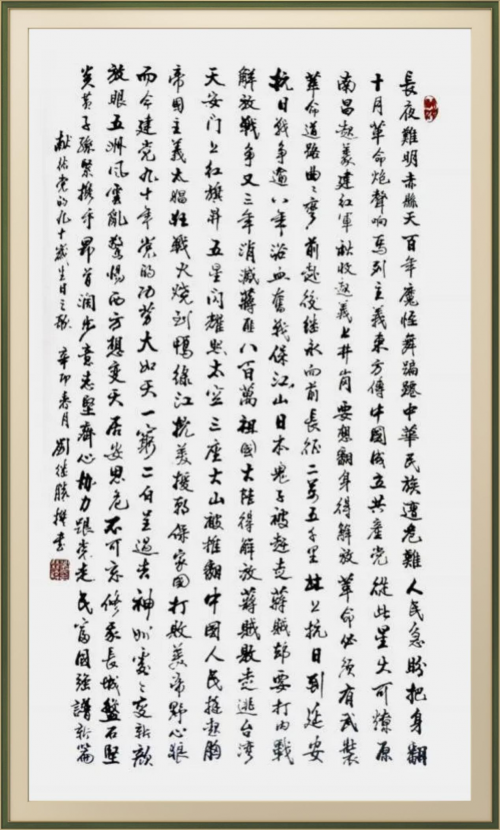 長夜難明赤縣天百年魔怪舞蹁躚中華民族遭危難人民急盼把身翻
十月革命炮聲响馬列主義東方傳中國成立共產党從此星火可燎原
南昌起義建紅軍秋收起義上井岗要想翻身得解放革命必須有武裝
革命道路曲〻彎前赴後继永向前長征二萬五千里北上抗日到延安
抗日戰争過八年浴血奮戰保江山日本鬼子被赶走蔣賊却要打内戰
解放戰争又三年消滅蔣匪八百萬祖國大陸得解放蔣賊敗走逃台湾
天安门上红旗升五星闪耀照太空三座大山被推翻中國人民挺起胸
帝国主義太猖狂戰火烧到鴨緑江抗美援朝保家国打敗美帝野心狼
而今建党九十年党的功劳大如天一窮二白過去神州處〻变新颜
放眼五洲风雲亂警惕西方想变天居安思危不可忘修家長城盤石堅
炎黄子孫緊携手昂首阔步意志堅齊心协力跟党走民富國強譜新篇
献给党的九十歲生日之际 辛卯春月 劉继勝撰書